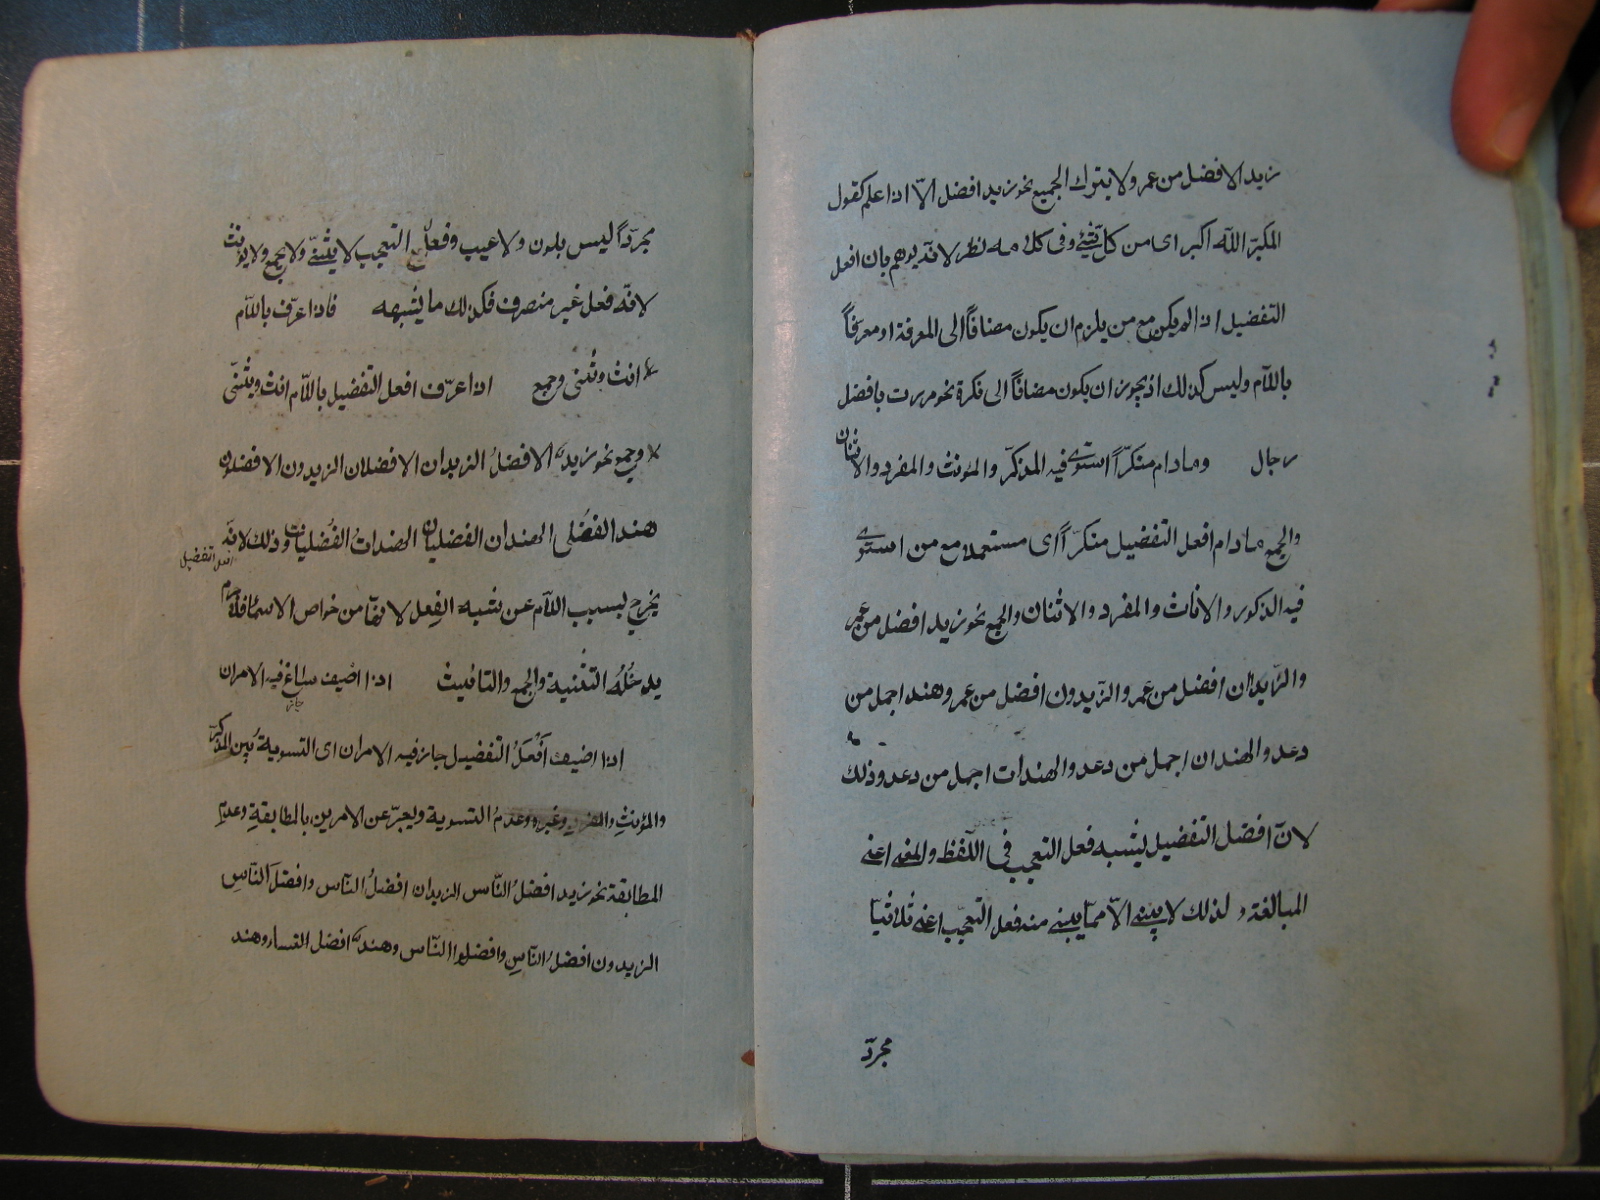 زيد الافضل من عمر ولا يترك الجميع نحو زيد افضل الّا اذا علم كقول
المكبّر اللّه اكبر اى من كلّ شئ وفى كلامه نظر لانّه يوهم بان افعل
التفضيل اذا لم يكن مع من يلزم ان يكون مضافاً الى المعرفة او معرّفاً
باللّام وليس كذلك اذ يجوز ان يكون مضافاً الى نكرة نحو مررت بافضل
رجال وما دام منكّراً استوى فيه المذكّر والمؤنث والمفرد والاثنان
والجمع مادام افعل التفضيل منكّراً اى مستعملا مع من استوى
فيه الذكور والاناث والمفرد والاثنان والجمع نحو زيد افضل من عمر
والزّيدان افضل من عمر والزّيدون افضل من عمر وهند اجمل من
دعد والهندان اجمل من دعد والهندات اجمل من دعد وذلك
لانّ افضل التفضيل يشبه فعل التعجب فى اللّفظ والمعنى اعنى
المبالغة ولذلك لا يبنى الّا ممّا يبنى منه فعل التعجّب اعنى ثلاثيّا
مجرّد
مجرّداً ليس بلون ولا عيب وفعل التعجب لا يثنّى ولا يجمع ولا يؤنث
لانّه فعل غير منصرف فكذلك ما يشبهه فاذا عرّف باللّام
انث وثنى وجمع اذا عرّف افعل التفضيل باللّام انث ويثنّى
وجمع نحو زيد الافضلُ الزيدان الافضلان الزيدون الافضلون
هند الفضلى الهندان الفضليان الهندات الفضليات وذلك لانّه
افعل التفضيل
يخرج بسبب اللّام عن شبه الفِعل لانّها من خواص الاسماء فلا جرم
يدخُلُه التثنية والجمع والتانيث اذا اضيف ساغ فيه الامران
جاز
اذا اضيف اَفْعَلُ التفضيل جاز فيه الامران اى التسوية بين المذكّر
والمؤنثِ والمفرد وغيره وعدمُ التسوية ويعبرّ عن الامرين بالمطابقةِ وعدمِ
المطابقة نحو زيد افضلُ النّاس الزيدان افضلُ النّاس وافضلَا النّاسِ
الزيدون افضلُ النّاسِ وافضلوا النّاس وهند افضل النساء وهند